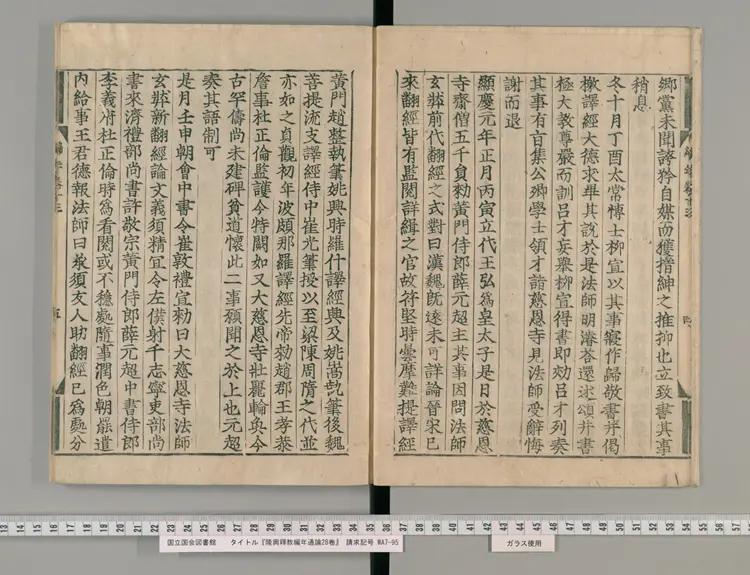 鄉黨未聞誇矜自媒而獲搢紳之推抑也立致書其事
稍息
冬十月丁酉太常博士柳宣以其事寢作歸敬書幷偈
檄譯經大德求畢其說於是法師明濬荅還述頌幷書
極大敎尊嚴而訓呂才妄舉柳宣得書即勑呂才列奏
其事有百集公卿學士領才詣慈恩寺見法師受辭悔
謝而退
顯慶元年正月丙寅立代王弘爲皇太子是日於慈恩
寺齋僧五千員勑黃門侍郎薛元超主其事因問法師
玄弉前代翻經之式對曰漢魏旣遠未可詳論晉宋已
來翻經皆有監閱詳緝之官故苻堅時曇摩難提譯經
黃門趙整執筆姚興時羅什譯經興及姚嵩執筆後魏
菩提流支譯經侍中崔光筆授以至梁陳周隋之代並
亦如之貞觀初年波頗那羅譯經先帝勑趙郡王孝恭
詹事杜正倫監護今特闕如又大慈恩寺壯麗輪奐今
古罕儔尚未建碑貧道懷此二事願聞之於上也元超
奏其語制可
是月壬申朝會中書令崔敦禮宣勑曰大慈恩寺法師
玄弉新翻經論文義須精冝令左僕射于志寧吏部尚
書來濟禮部尚書許敬宗黃門侍郎薛元超中書侍郎
李義府杜正倫時爲看閱或不穩處隨事潤色朝罷遣
內給事王君德報法師曰師須友人助翻經已爲處分
四
五
13 14 15 16 17 18 19 20 21 22 23 24 25 26 27 28 29 30 31 32 33 34 35 36 37 38 39 40 41 42 43 44 45 46 47 48 49 50 51 52 53 54 55
国立国会図書館 タイトル『隆興釋教編年通論28巻』 請求記号 WA7-95
ガラス使用